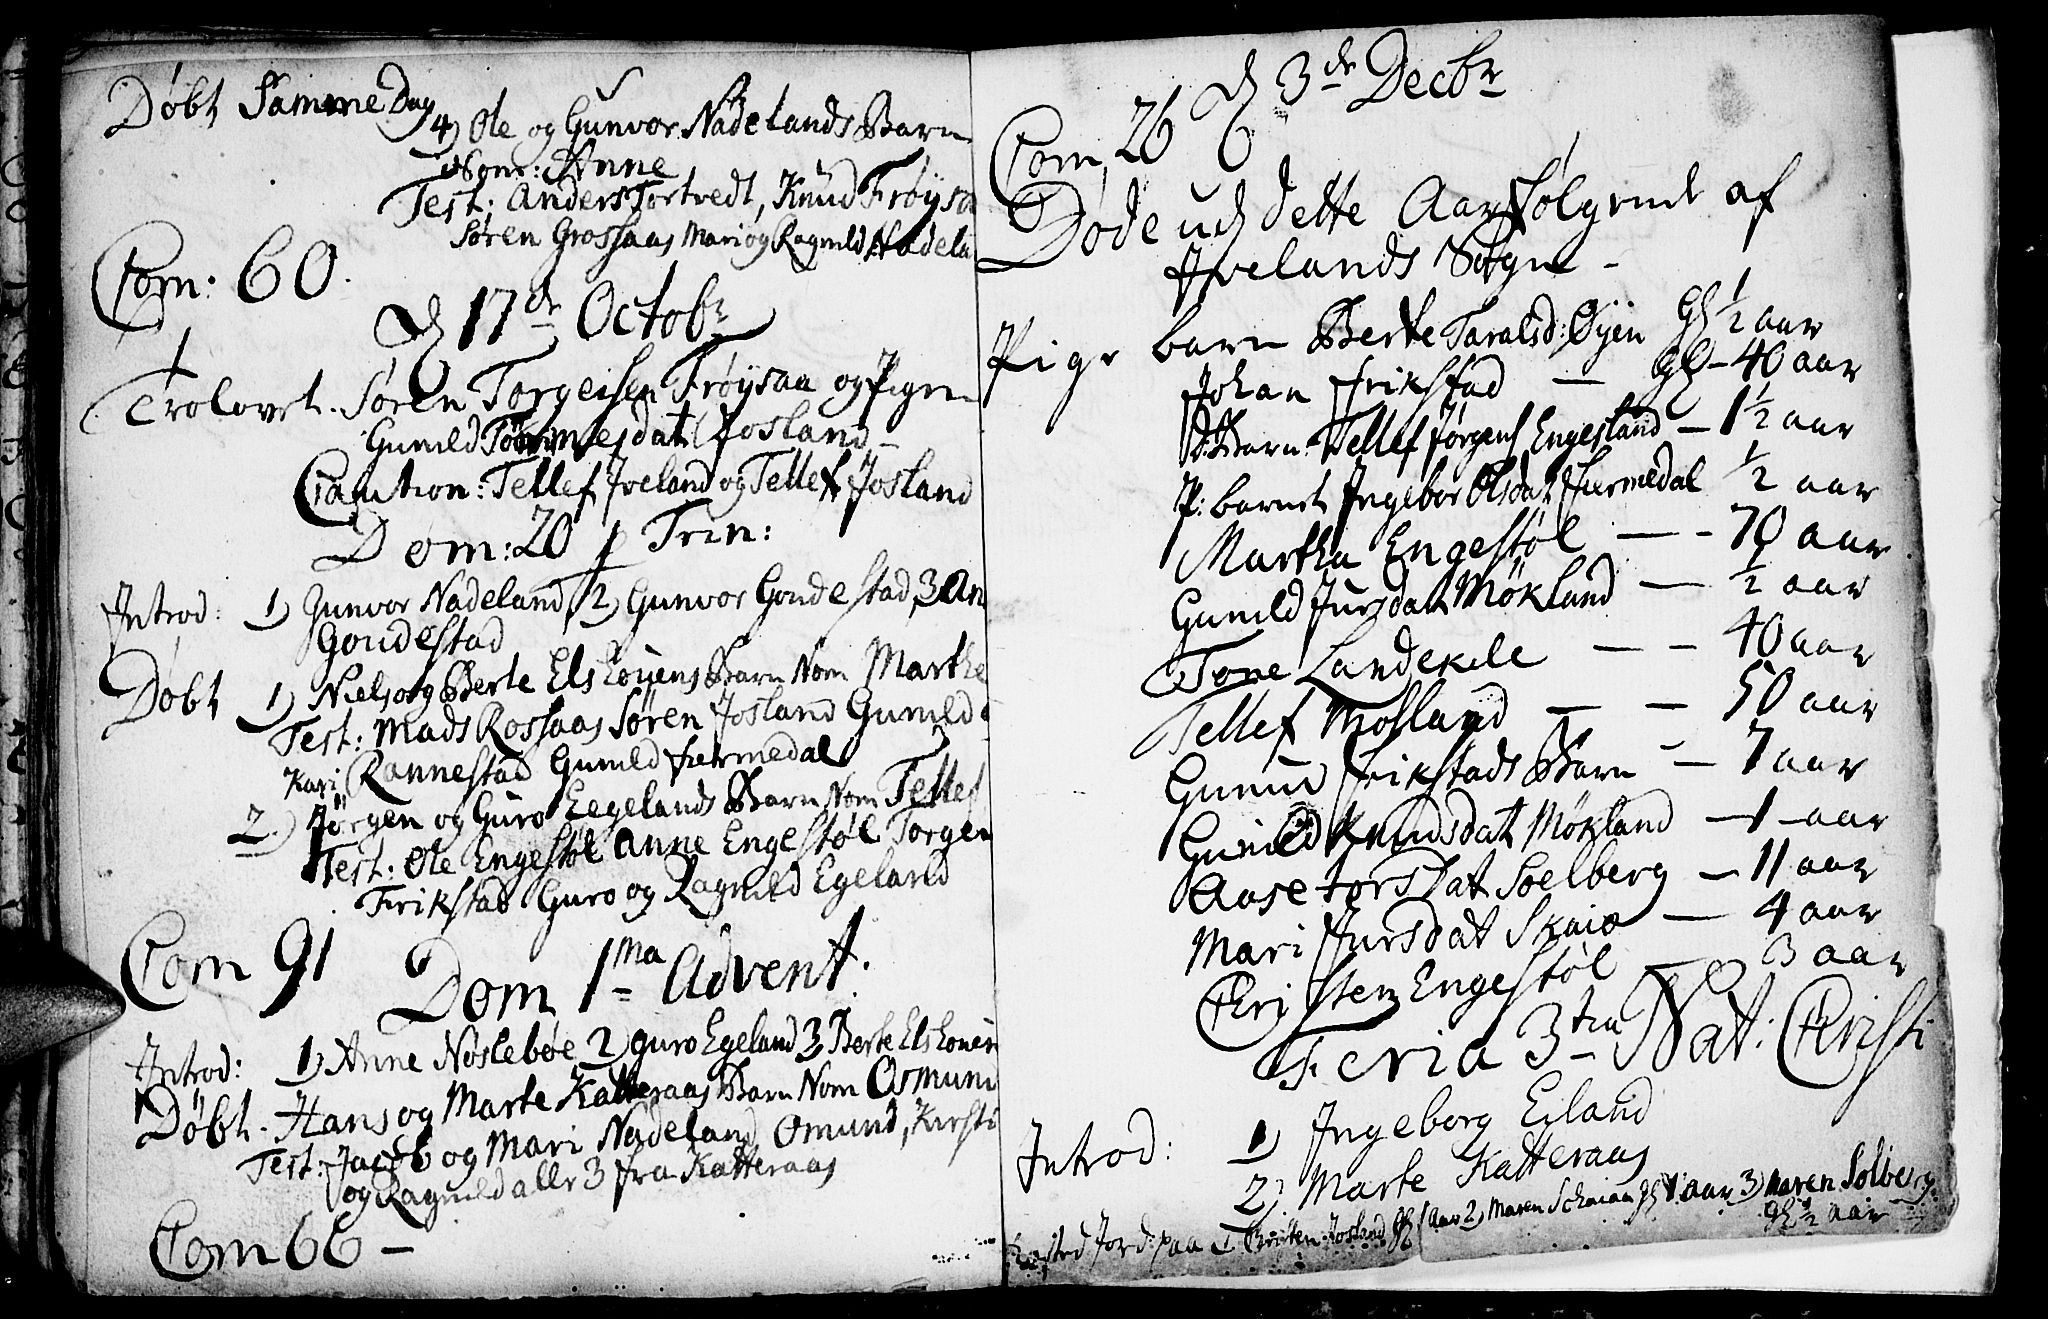 Døbt Samme Dag
4) Ole og Gunvor Nadelands Barn
Nom: Anne
Test: Anders Tortvedt, Knud Frøysa
Søren Grossaas Mari og Ragnild Nadela
Com: 60.
D 17de Octobr
Trolovet. Søren Torgeisen Frøysaa og Pigen
Gunild Tommesdat Josland –
Caution: Tellef Iveland og Tellef Josland
Dom: 20 p Trin:
Introd: 1) Gunvor Nadeland, 2) Gunvor Goudestad, 3 An
Goudestad
Døbt 1) Niels og Berte Elsløyens Barn Nom Marthe
Test: Mads Rossaas Søren Josland Gunild
Kari Rannestad Gunild Fiermedal
2.) Jørgen og Guro Eegelands Barn Nom Tellef
Test: Ole Engestøl Anne Engestøl Torgen
Frikstad Guro og Ragnild Egeland
Com 91
Dom 1ma Advent.
Introd: 1) Anne Nøslebøe 2) Guro Egeland 3 Berte Elsløuen
Døbt. Hans og Marte Katteraas Barn Nom Osmund
Test: Jacob og Mari Nadeland Omund, Kirsti
og Ragnild alle 3 fra Katteraas
Com 66 –
D 3de Decbr
Com, 26
Døde ud dette Aar følgende af
Ivelands Sogn –
Pige barn Berte Taralsd: Øyen Gl ½ aar
Johan Frikstad — gl – 40 aar
D: Barn Tellef Jørgens Engesland – 1½ aar
P: barnet Ingebor Olsdat Fiermedal ½ aar
Martha Engestøl — - 70 aar
Gunild Jursdat Møkland — ½ aar
Tone Landekile — – 40 aar
Tellef Mosland — – 50 aar
Gunild Frikstads Barn – – 7 aar
Gunild Knudsdat Møkland – 1 – aar
Aase Torsdat Soelberg – 11 aar
Mari Jursdat Skaio — 4 aar
Christen Engestøl — 3 aar
Feria 3tia Nat: Christi
Introd: 1) Ingeborg Eiland
2) Marte Katteraas
Kasted Jord paa 1 Christen Josland gl 1 Aar 2) Maren Schaiaa gl 1 aar 3) Maren Solberg
gl ½ aar